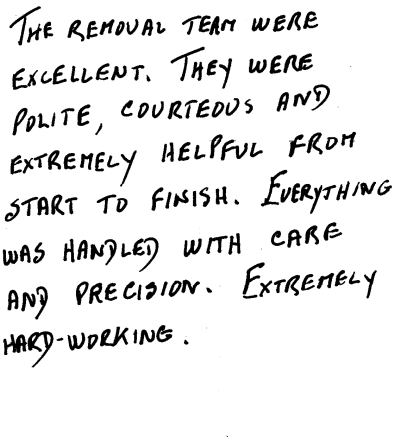 THE REMOVAL TEAM WERE
EXCELLENT. THEY WERE
POLITE, COURTEOUS AND
EXTREMELY HELPFUL FROM
START TO FINISH. EVERYTHING
WAS HANDLED WITH CARE
AND PRECISION. EXTREMELY
HARD-WORKING.